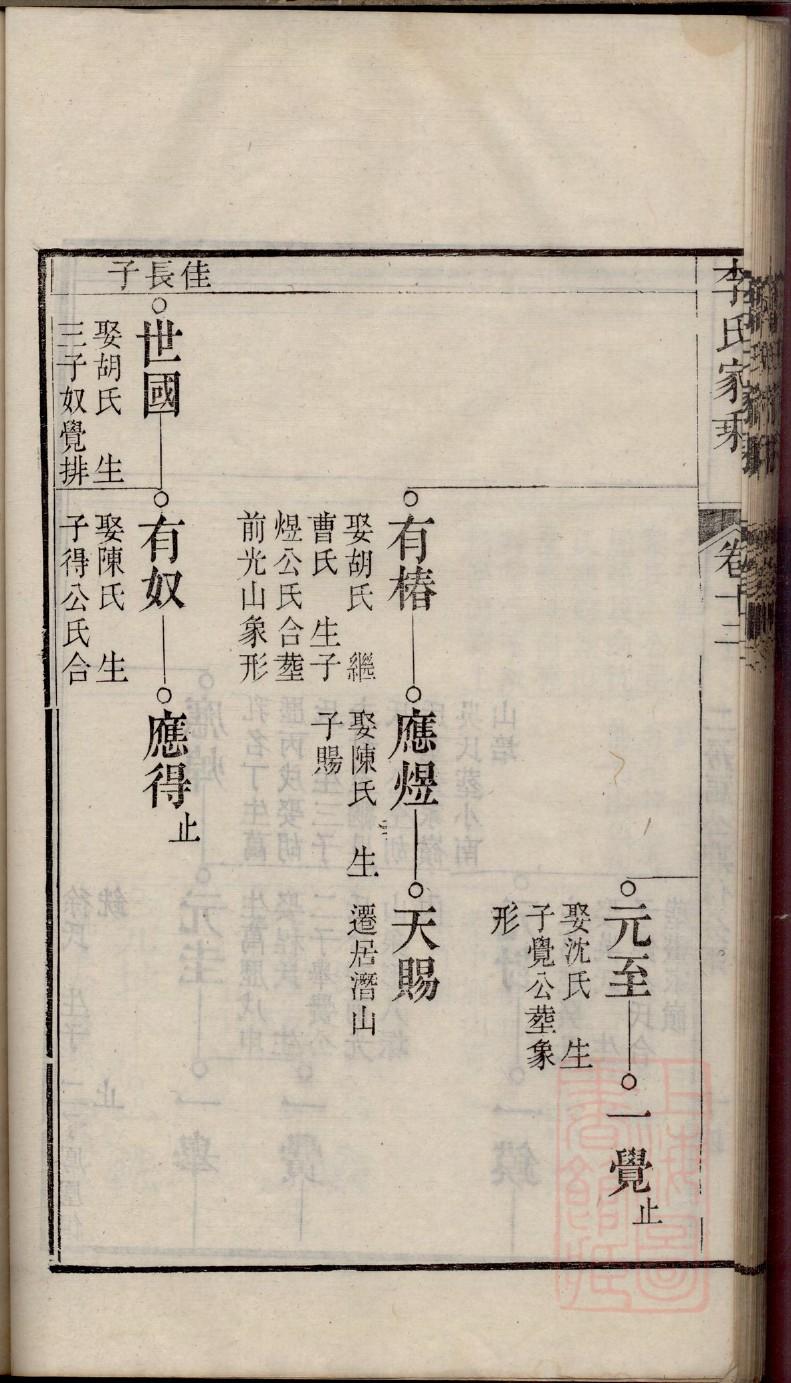 李氏家乘
卷十二
元至
娶沈氏　生
子覺公塟象
形
一覺
止
有椿
娶胡氏　繼
曹氏　生子
煜公氏合塟
前光山象形
應煜
娶陳氏　生
子賜
天賜
遷居潛山
佳長子
世國
娶胡氏　生
三子奴覺排
有奴
娶陳氏　生
子得公氏合
應得
止